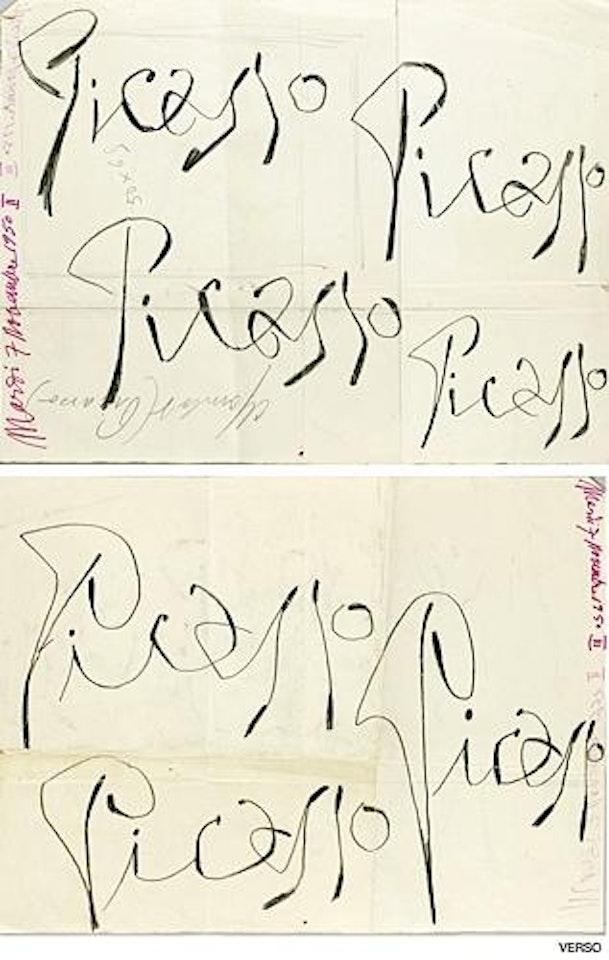 Picasso
Picasso
Picasso
Picasso
50 x 65
Mardi 7 Novembre 1950 II
Picasso
Picasso
Picasso
Mardi 7 Novembre 1950 II
VERSO